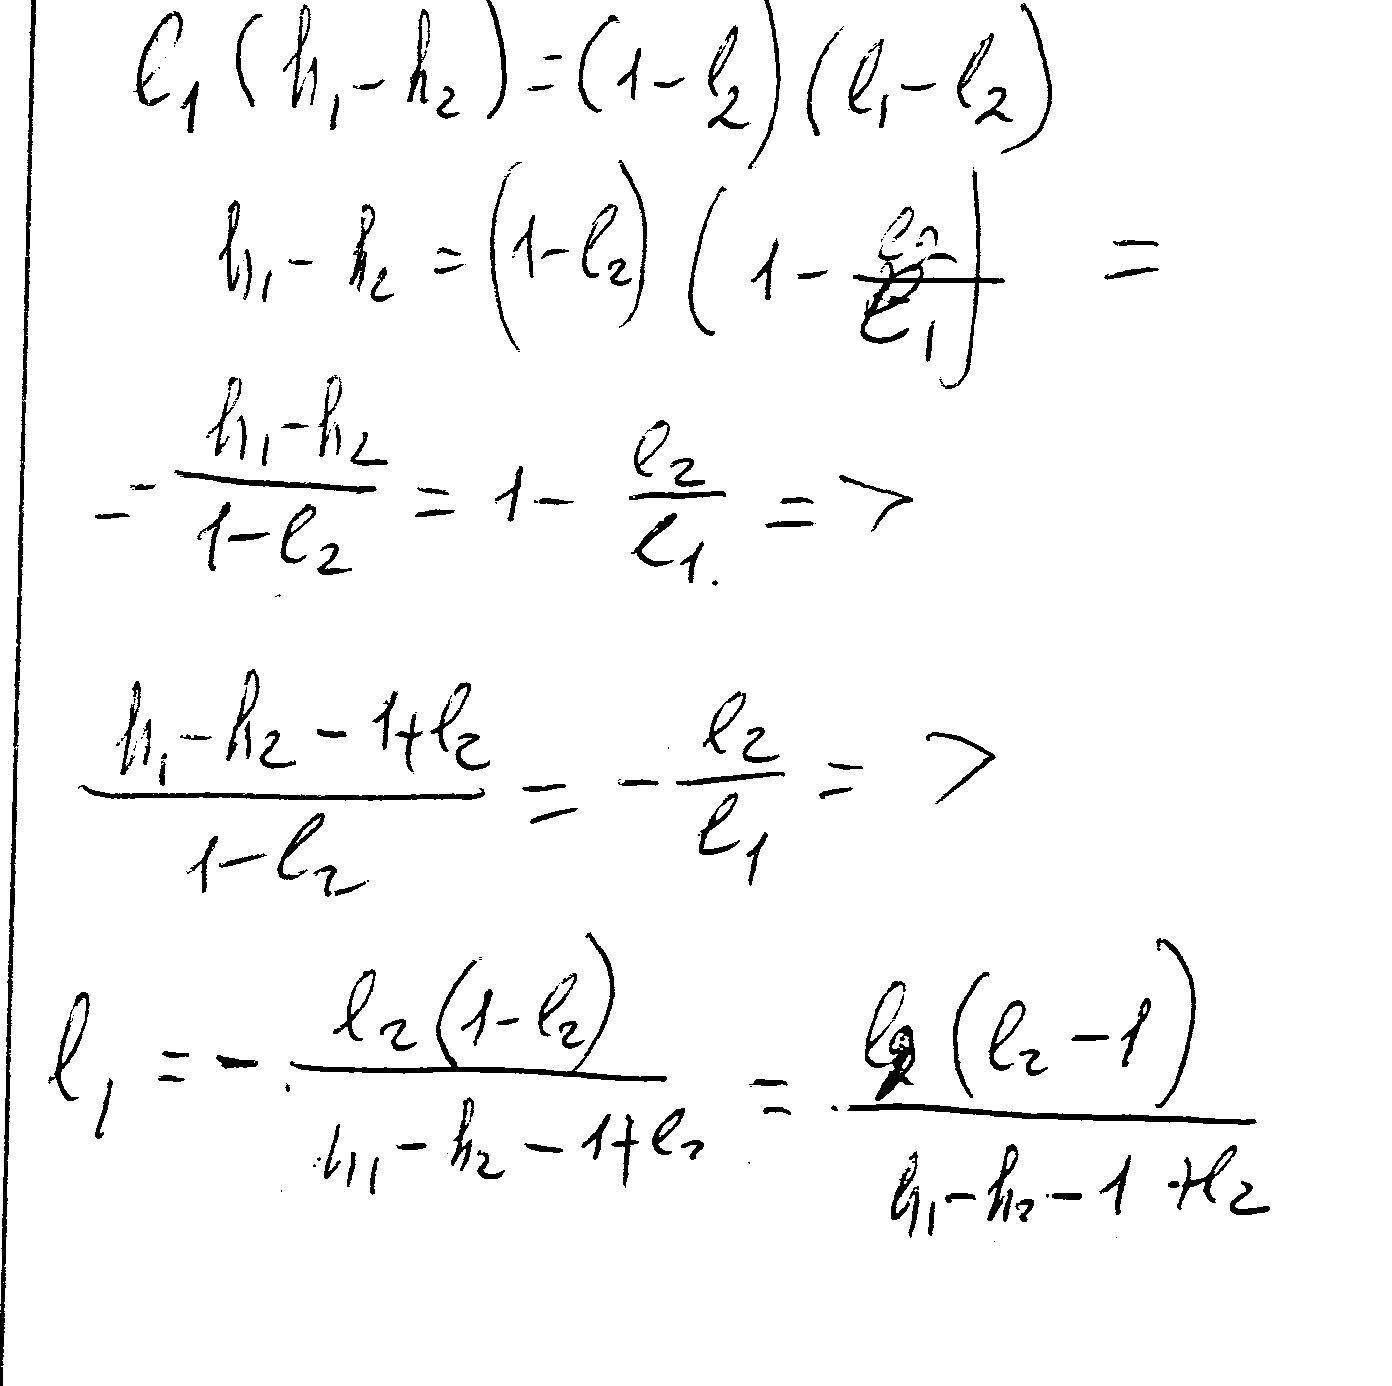 l₁(h₁-h₂)=(1-l₂)(l₁-l₂)
h₁-h₂=(1-l₂)(1-l₂/l₁) =
= (h₁-h₂)/(1-l₂) = 1 - l₂/l₁ =>
(h₁-h₂-1+l₂)/(1-l₂) = - l₂/l₁ =>
l₁ = - l₂(1-l₂)/(h₁-h₂-1+l₂) = l₂(l₂-1)/(h₁-h₂-1+l₂)